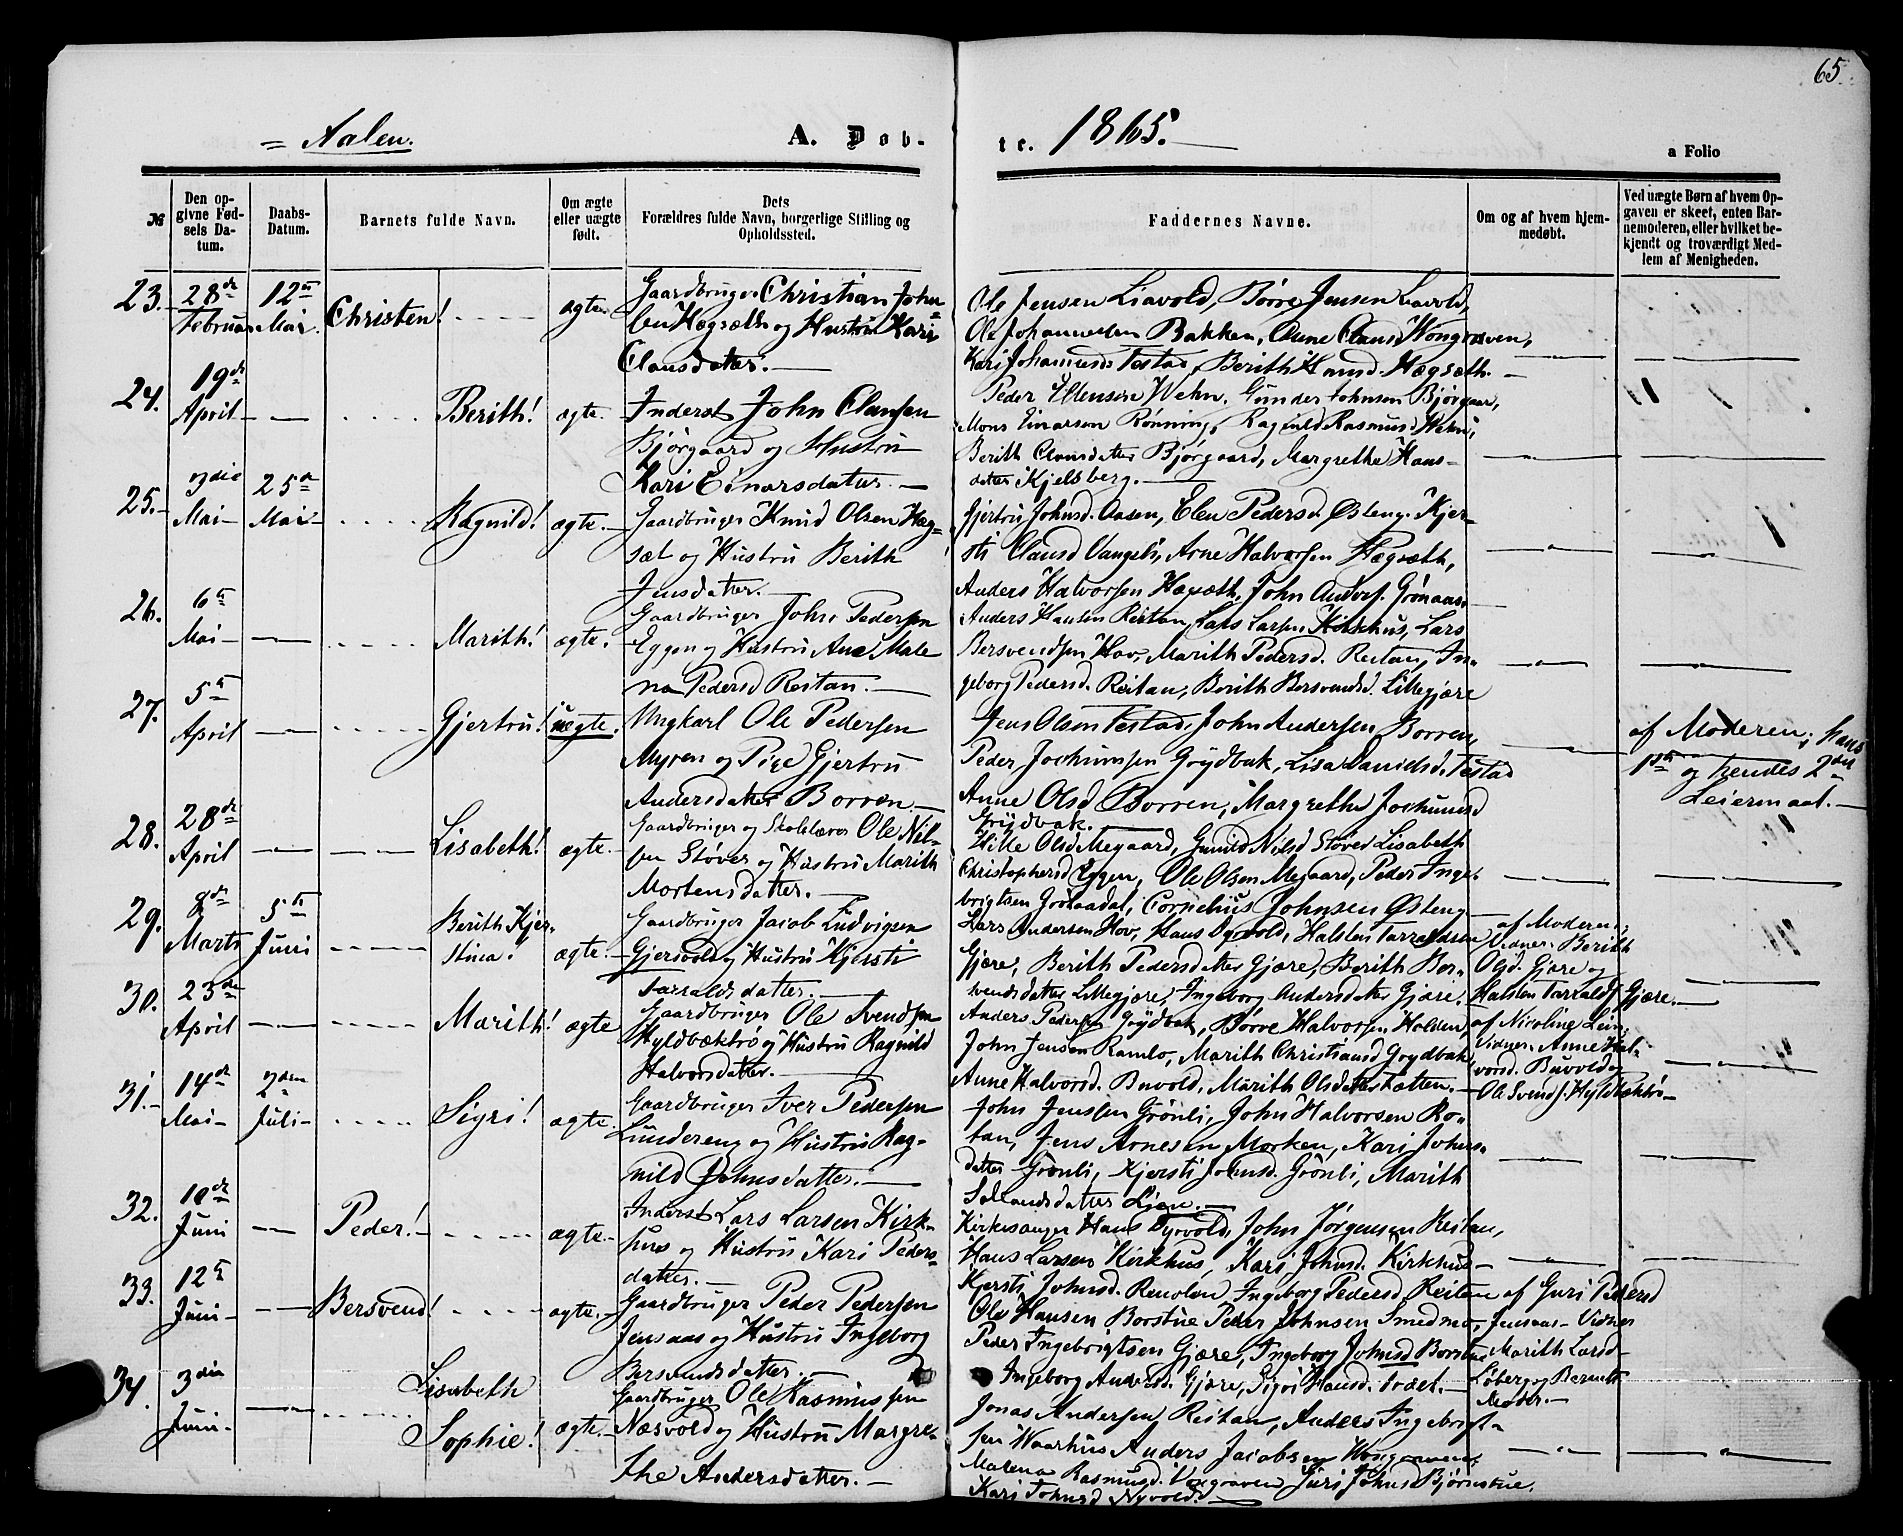 65.
= Aalen.
A. Døb-
te. 1865.
a Folio
№
Den op-
givne Fød-
sels Da-
tum.
Daabs-
Datum.
Barnets fulde Navn.
Om ægte
eller uægte
født.
Dets
Forældres fulde Navn, borgerlige Stilling og
Opholdssted.
Faddernes Navne.
Om og af hvem hjem-
medøbt.
Ved uægte Børn af hvem Op-
gaven er skeet, enten Bar-
nemoderen, eller hvilket be-
kjendt og troværdigt Med-
lem af Menigheden.
23. 28de Februar 12te Mai Christen! ægte
Gaardbruger Christian John-
sen Hægsæth og Hustru Kari
Clausdatter.
Ole Jensen Liavold, Børre Jensen
Ole Johannesen Bakken, Anne Clausd Wongraven,
Kari Johannesd. Testad, Berith Knud. Hægsæth.
24. 19de April Berith! ægte.
Inderst John Clausen
Bjørgaard og Hustru
Kari Einarsdatter.
Peder Ellensen Wehn, Gunder Johnsen Bjørgaar,
Mons Einarsen Rønning, Ragnild Rasmusd Wehn,
Berith Clausdatter Bjørgaard, Margrethe Hans-
datter Kjelsberg.
25. 3die Mai 25de Mai Ragnild! ægte.
Gaardbruger Knud Olsen Hæg-
sæt og Hustru Berith
Jensdatter.
Gjertru Johnsd. Aasen, Elen Pedersd. Østeng, Kjer-
sti Clausd Vangeli, Arne Halvorsen Hægsæth,
Anders Halvorsen Hægsæth, John Andersf. Grønaas.
26. 6te Mai Marith! ægte.
Gaardbruger John Pedersen
Eggen og Hustru Ane Male
na Pedersd Reitan.
Anders Hansen Reitan, Lars Larsen Kirkhus, Lars
Bersvendsen Hov, Marith Pedersd. Reitan, In-
geborg Pedersd. Reitan, Berith Bersvendsd. Lillegjære
27. 5te April Gjertru! uægte.
Ungkarl Ole Pedersen
Myren og Pige Gjertru
Andersdatter Borren.
Jens Olsen Testad, John Andersen Borren,
Peder Jochumsen Grydbak, Lisa Davidsd. Testad
Anne Olsd Borren, Margrethe Jochumsd
Grydbak.
af Moderen; hans
1ste og hendes 2det
Leiermaal.
28. 28de April Lisabeth! ægte.
Gaardbruger og Skolelærer Ole Nil-
sen Støver og Hustru Marith
Mortensdatter.
Hille Olsd Megaard, Gunild Nilsd Støver Lisabeth
Christophersd Eggen, Ole Olsen Megaard, Peder Inge-
brigtsen Grønaadal, Cornelius Johnsen Østeng
29. 8de Marts 5te Juni Berith Kjer-
stina! ægte.
Gaardbruger Jacob Ludvigsen
Gjersvold og Hustru Kjersti
Tarraldsdatter.
Lars Andersen Hov, Hans Dyrvold, Halsten Tarraldsen
Gjære, Berith Pedersdatter Gjære, Berith Ber-
svendsdatter Lillegjære, Ingeborg Andersdatter Gjære.
af Moderen;
Vidner: Berith
Olsd. Gjære og
Halsten Tarraldsf. Gjære.
30. 23de April Marith! ægte
Gaardbruger Ole Svendsen
Hyldbæktrø og Hustru Ragnild
Halvorsdatter.
Anders Pedersen Grydbak, Børre Halvorsen Holden
John Jensen Ramlo, Marith Christiansd Grydbak
Anne Halvorsd. Buvold, Marith Olsdatter Tatten.
af Nicoline Lein;
Vidner: Anne Hal-
vorsd. Buvold og
Ole Svendsf. Hyldbæktrø
31. 14de Mai 2den Juli Sigri! ægte.
Gaardbruger Iver Pedersen
Lundereng og Hustru Rag-
nild Johnsdatter.
John Jensen Grønli, John Halvorsen Ro-
tan, Jens Arnesen Morken, Kari Johns-
datter Grønli, Kjersti Johnsd. Grønli, Marith
Lien.
32. 10de Juni Peder! ægte.
Inderst Lars Larsen Kirk-
hus og Hustru Kari Peders-
datter.
Kirkesanger Hans Dyrvold, John Jørgensen Reitan,
Hans Larsen Kirkhus, Kari Johnsd. Kirkhus
Kjersti Johnsd. Renolen Ingeborg Pedersd Reitan
33. 12te Juni Bersvend! ægte.
Gaardbruger Peder Pedersen
Jensaas og Hustru Ingeborg
Bersvendsdatter.
Ole Hansen Borstue Peder Johnsen Smedmo,
Peder Ingebrigtsen Gjære, Ingeborg Johnsd Borstue
Ingeborg Andersd. Gjære, Sigri Hansd.
af Guri Pedersd
Jensaas. Vidner
Marith Larsd
Løberg og Barnets
Moder.
34. 3die Juni Lisabeth
Sophie! ægte.
Gaardbruger Ole Rasmussen
Næsvold og Hustru Margre-
the Andersdatter.
Jonas Andersen Reitan, Anders Ingebrigt-
sen Waarhus Anders Jacobsen Wongraven,
Malena Rasmusd. Vongraven, Guri Johnsd Bjørnstue.
Kari Johnsd Nyvold.